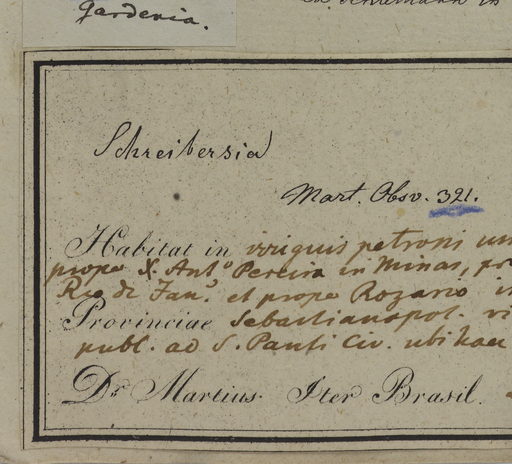 gardenia.
Schreibersia
Mart. Obsv. 321.
Habitat in irriguis petrosis
prope S. Ant.º Pereira in Minas,
Rio di Jan.º et prope Rozario
Provinciae Sebastianopol.
publ. ad S. Pauli Civ. ubi haec
Dr. Martius. Iter Brasil.